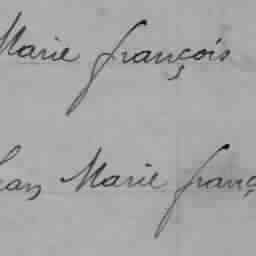 Marie françois
Jean Marie franç